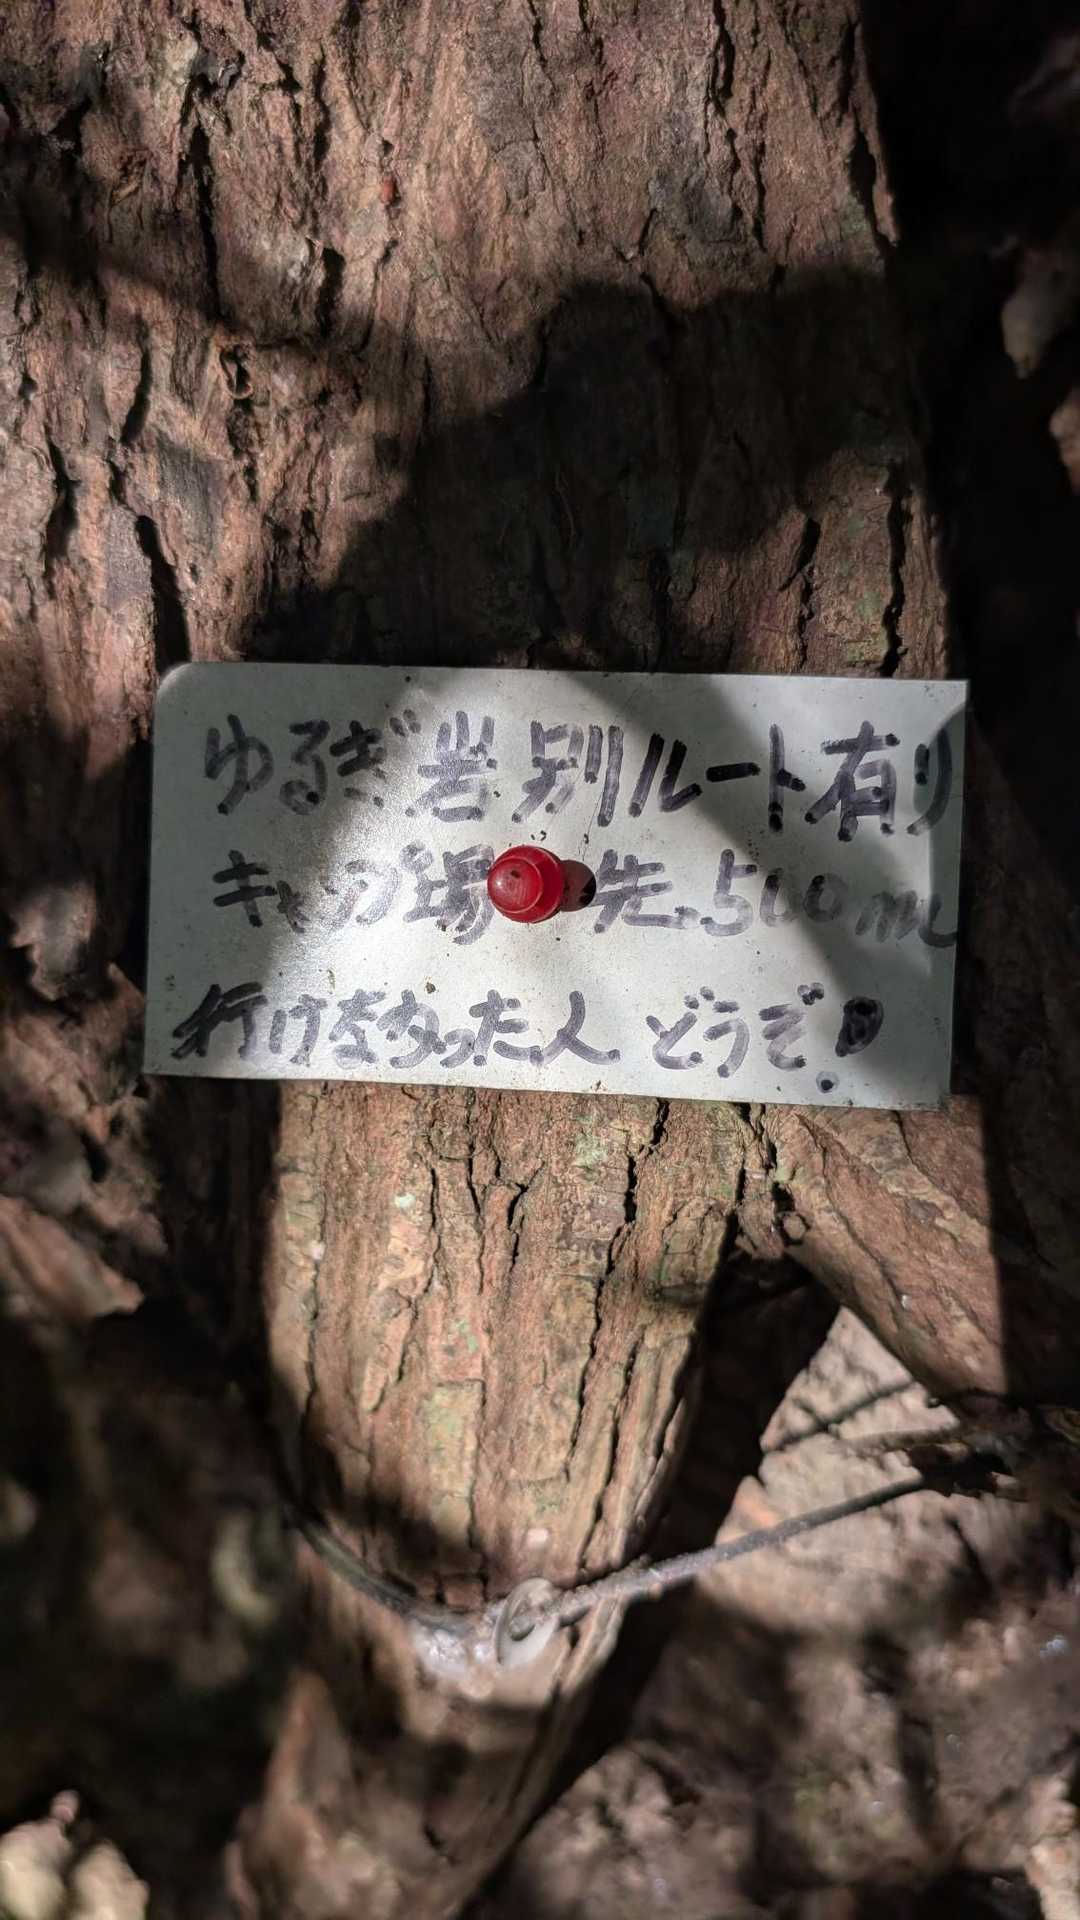 ゆるぎ岩 別ルート有り
キャンプ場 先500m
行けなかった人 どうぞ!